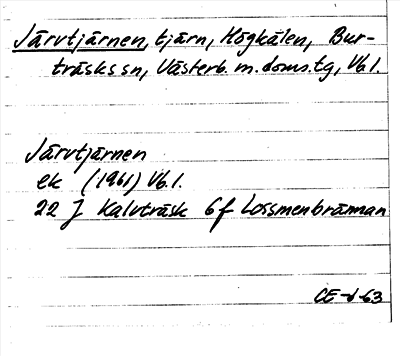 Järvtjärnen, tjärn, Högkälen, Bur-
träsks sn, Västerb. m. doms.tg, Vb. l.
Järvtjärnen
ek (1961) Vb. l.
22 J Kalvträsk 6f Lossmenbrännan
CE-d-63